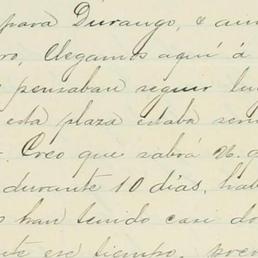 para Durango, é
ro, llegamos aquí á
pensaban seguir
esta plaza estaba
Creo que sabrá V. q
durante 10 días, hab
han tenido casi do
ese tiempo,